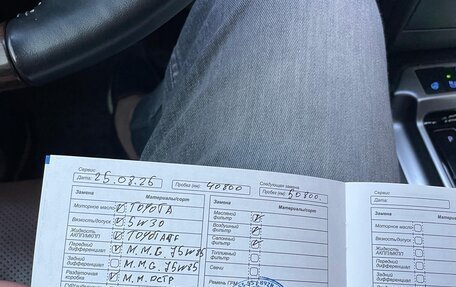 Сервис
Дата: 25.08.25 Пробег (км) 40800 Следующая замена Пробег (км) 50800
Замена Материалы/сорт
Моторное масло ✓ TOYOTA
Вязкость/допуск ✓ 5W30
Жидкость АКПП/МКПП ✓
Передний дифференциал ✓ М.М.G. 75W85
Задний дифференциал ✓ М.М.G. 75W85
Раздаточная коробка ✓
Замена Материалы/сорт
Масляный фильтр ✓
Воздушный фильтр ✓
Салонный фильтр ✓
Топливный фильтр
Свечи
Ремень ГРМ
Сервис
Дата:
Замена
Моторное масло
Вязкость/допуск
Жидкость АКПП/МКПП
Передний дифференциал
Задний дифференциал
Раздаточная коробка